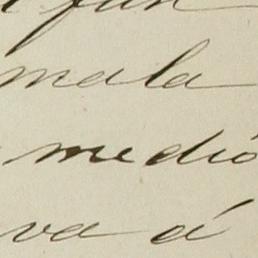 fun
mala
medió
va á